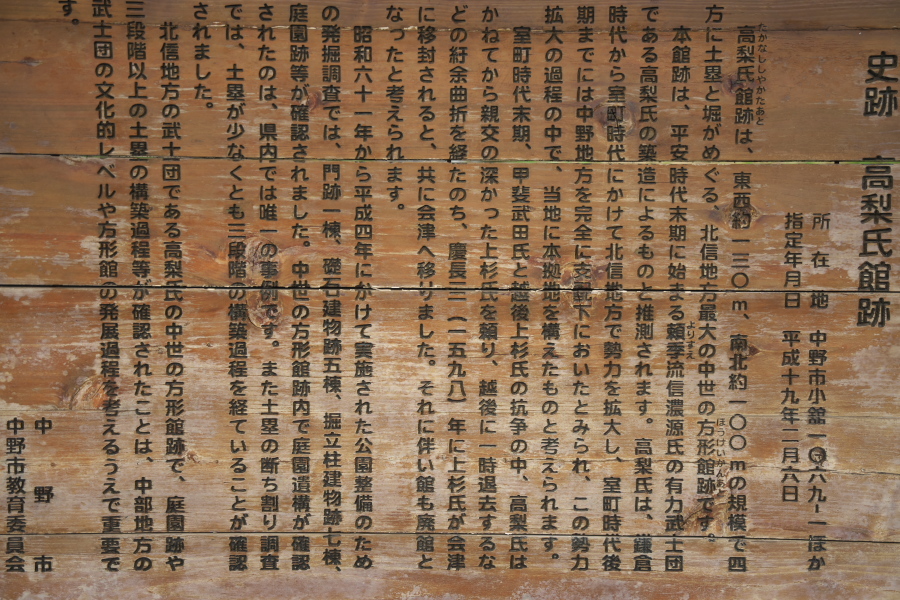 史跡 高梨氏館跡
所在地 中野市小舘一〇六九-一ほか
指定年月日 平成十九年二月六日
高梨氏館跡は、東西約一三〇m、南北約一〇〇mの規模で四
たかなししやかたあと
方に土塁と堀がめぐる、北信地方最大の中世の方形館跡です。
ほうけいかんあと
本館跡は、平安時代末期に始まる頼季流信濃源氏の有力武士団
よりすえ
である高梨氏の築造によるものと推測されます。高梨氏は、鎌倉
時代から室町時代にかけて北信地方で勢力を拡大し、室町時代後
期までには中野地方を完全に支配下においたとみられ、この勢力
拡大の過程の中で、当地に本拠地を構えたものと考えられます。
室町時代末期、甲斐武田氏と越後上杉氏の抗争の中、高梨氏は
かねてから親交の深かった上杉氏を頼り、越後に一時退去するな
どの紆余曲折を経たのち、慶長三(一五九八)年に上杉氏が会津
に移封されると、共に会津へ移りました。それに伴い館も廃館と
なったと考えられます。
昭和六十一年から平成四年にかけて実施された公園整備のため
の発掘調査では、門跡一棟、礎石建物跡五棟、掘立柱建物跡七棟、
庭園跡等が確認されました。中世の方形館跡内で庭園遺構が確認
されたのは、県内では唯一の事例です。また土塁の断ち割り調査
では、土塁が少なくとも三段階の構築過程を経ていることが確認
されました。
北信地方の武士団である高梨氏の中世の方形館跡で、庭園跡や
三段階以上の土塁の構築過程等が確認されたことは、中部地方の
武士団の文化的レベルや方形館の発展過程を考えるうえで重要で
す。
中野市
中野市教育委員会